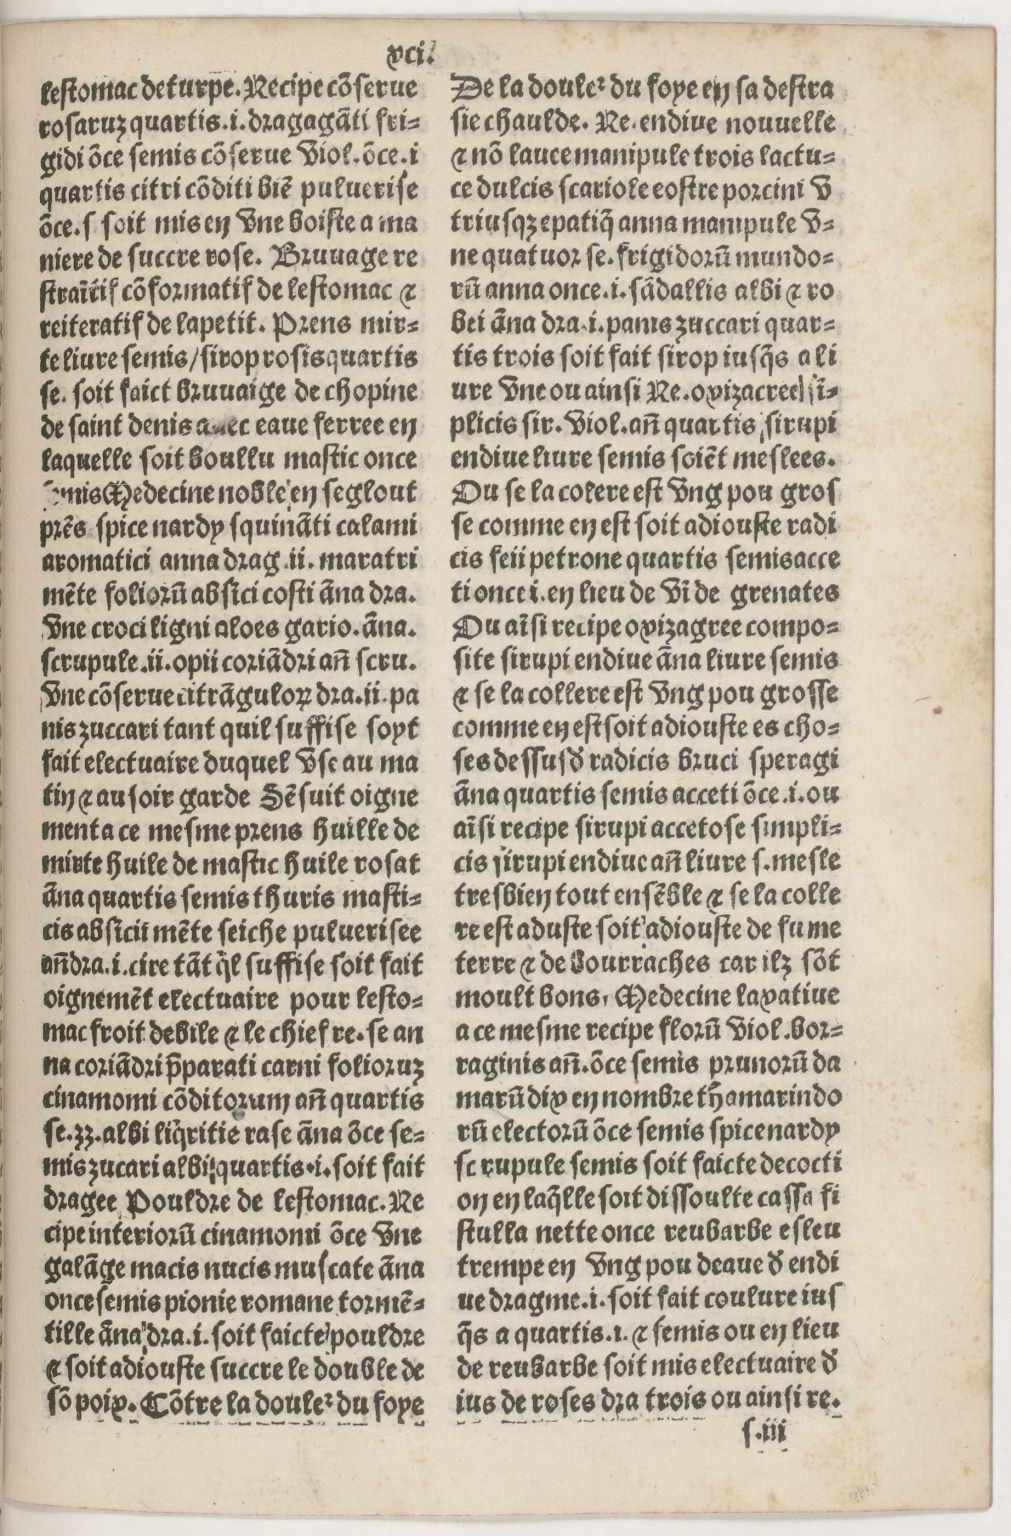 xci.
lestomac deturpe. Recipe cõserue
rosaruz quartis.i. dragagãti fri-
gidi õce semis cõserue viol. õce.i
quartis citri cõditi biẽ puluerise
õce.s soit mis en vne boiste a ma
niere de succre rose. Bruuage re
cõformatif de lestomac &
reiteratif de lapetit. Prens mir-
te liure semis/sirop rosis quartis
se. soit faict bruuaige de chopine
de saint denis auec eaue ferree en
laquelle soit boullu mastic once
Medecine noble en seglout
prẽs spice nardy squinãti calami
aromatici anna drag.ii. maratri
mẽte foliorũ absĩci costi ãna dra.
vne croci ligni aloes gario. ãna.
scrupule.ii. opii coriãdri añ scru.
vne cõserue citrãguloꝝ dra.ii. pa
nis zuccari tant quil suffise soyt
fait electuaire duquel vse au ma
tin & au soir garde Sẽsuit oigne
ment a ce mesme prens huille de
mirte huile de mastic huile rosat
ãna quartis semis thuris masti-
cis absĩcii mẽte seiche puluerisee
añ dra.i. cire tãt q̃l suffise soit fait
oignemẽt electuaire pour lesto-
mac froit debile & le chief re. se an
na coriãdri p̃parati carni folioruz
cinamomi cõditorum añ quartis
se.zz. albi liq̃ritie rase ãna õce se-
mis zucari albi quartis.i. soit fait
dragee Pouldre de lestomac. Re
cipe interiorũ cinamomi õce vne
galãge macis nucis muscate ãna
once semis pionie romane tormẽ-
tille ãna dra.i. soit faicte pouldre
& soit adiouste succre le double de
sõ poix. Cõtre la douleꝛ du foye
De la douleꝛ du foye en sa destra
sie chaulde. Re. endiue nouuelle
& nõ lauce manipule trois lactu-
ce dulcis scariole eostre porcini v
triusqz epatiq̃ anna manipule v-
ne quatuor se. frigidorũ mundo-
rũ anna once.i. sãdallis albi & ro
bei ãna dra.i. panis zuccari quar-
tis trois soit fait sirop iusq̃s a li
ure vne ou ainsi Re. oxizacree sĩ-
plicis sir. viol. añ quartis sirupi
endiue liure semis soiẽt meslees.
Ou se la colere est vng pou gros
se comme en est soit adiouste radi
cis feii petrone quartis semis acce
ti once i. en lieu de vĩ de grenates
Ou aĩsi recipe oxizagree compo-
site sirupi endiue ãna liure semis
& se la collere est vng pou grosse
comme en est soit adiouste es cho-
ses dessusd̕ radicis brucì speragi
ãna quartis semis acceti õce.i. ou
aĩsi recipe sirupi accetose simpli-
cis sirupi endiue añ liure s. mesle
tresbien tout ensẽble & se la colle
re est aduste soit adiouste de fume
terre & de bourraches car ilz sõt
moult bons, Medecine laxatiue
a ce mesme recipe florũ viol. bor-
raginis añ. õce semis prunorũ da
marũ dix en nombre thamarindo
rũ electorũ õce semis spicenardy
scrupule semis soit faicte decocti
on en laq̃lle soit dissoulte cassa fi
stulla nette once reubarbe esleu
trempe en vng pou deaue d̕ endi
ue dragme.i. soit fait coulure ius
q̃s a quartis.i. & semis ou en lieu
de reubarbe soit mis electuaire d̕
ius de roses dra trois ou ainsi re.
s.iii